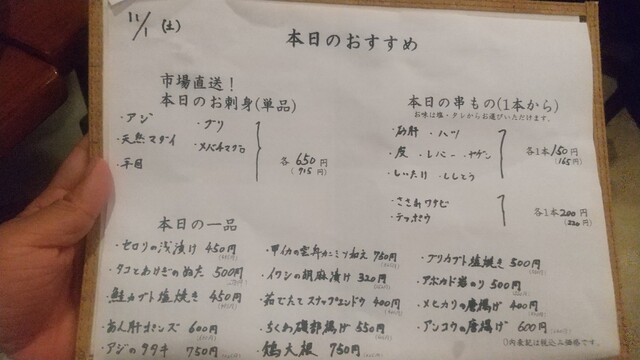 11/1 (土)
本日のおすすめ
市場直送!
本日のお刺身(単品)
・アジ ・ブリ
・天然マダイ ・メバチマグロ
・平目
各 650円
(715円)
本日の串もの(1本から)
お味は塩・タレからお選びいただけます。
・砂肝 ・ハツ
・皮 ・レバー ・ヤゲン
・しいたけ ・ししとう
各1本150円
(165円)
・ささみワサビ
・テッポウ
各1本200円
(220円)
本日の一品
・セロリの浅漬け 450円
・タコとあげぎのぬた 500円
・鮭カブト塩焼き 450円
・あん肝ポンズ 600円
・アジのタタキ 750円
・甲イカの カニミソ和え 750円
・イワシの胡麻漬け 320円
・茹でたてスナップエンドウ 400円
・ちくわ磯部揚げ 550円
・鶏大根 750円
・ブリカブト塩焼き 500円
・アボカド岩のり 500円
・メヒカリの唐揚げ 400円
・アンコウの唐揚げ 600円
()内表記は税込み価格です。